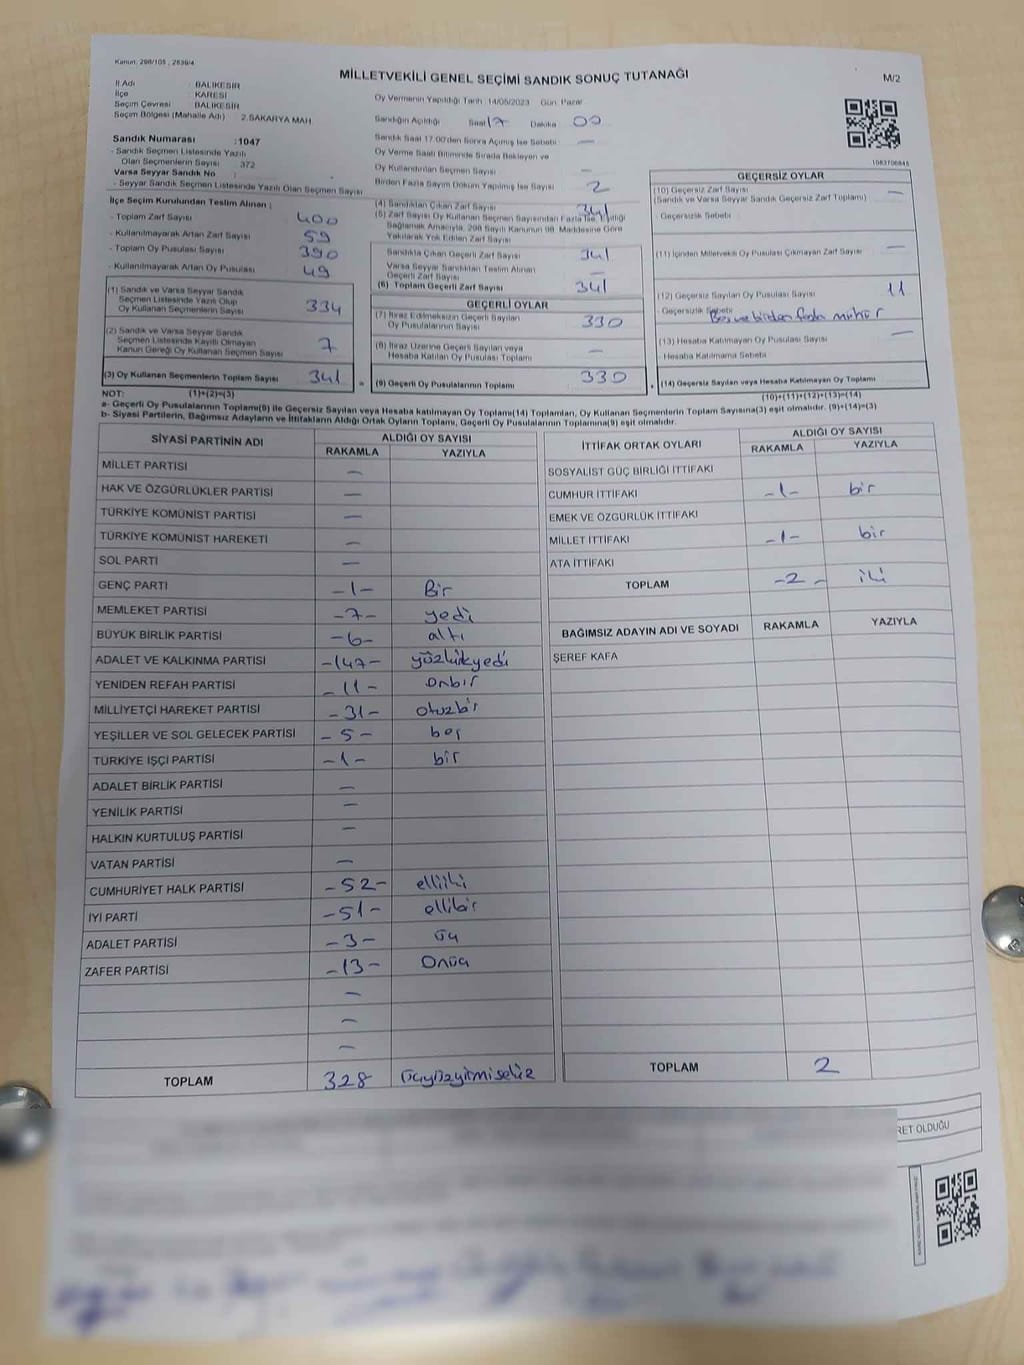 Kanun: 298/105 , 2839/4
MİLLETVEKİLİ GENEL SEÇİMİ SANDIK SONUÇ TUTANAĞI
M/2
İl Adı : BALIKESİR
İlçe : KARESİ
Seçim Çevresi : BALIKESİR
Seçim Bölgesi (Mahalle Adı) 2.SAKARYA MAH.
Sandık Numarası :1047
- Sandık Seçmen Listesinde Yazılı
Olan Seçmenlerin Sayısı 372
Varsa Seyyar Sandık No :
- Seyyar Sandık Listesinde Yazılı Olan Seçmen Sayısı
Oy Vermenin Yapıldığı Tarih :14/05/2023 Gün: Pazar
Sandığın Açıldığı Saat 17 Dakika 00
Sandık Saat 17:00'den Sonra Açılmış İse Sebebi : —
Oy Verme Saati Bitiminde Sırada Bekleyen ve
Oy Kullandırılan Seçmen Sayısı —
Birden Fazla Sayım Döküm Yapılmış İse Sayısı 2
1083706845
İlçe Seçim Kurulundan Teslim Alınan ;
- Toplam Zarf Sayısı 400
- Kullanılmayarak Artan Zarf Sayısı 59
- Toplam Oy Pusulası Sayısı 390
- Kullanılmayarak Artan Oy Pusulası 49
(1) Sandık ve Varsa Seyyar Sandık
Seçmen Listesinde Yazılı Olup
Oy Kullanan Seçmenlerin Sayısı 334
(2) Sandık ve Varsa Seyyar Sandık
Seçmen Listesinde Kayıtlı Olmayan
Kanun Gereği Oy Kullanan Seçmen Sayısı 7
(3) Oy Kullanan Seçmenlerin Toplam Sayısı 341
(4) Sandıktan Çıkan Zarf Sayısı 341
(5) Zarf Sayısı Oy Kullanan Seçmen Sayısından Fazla İse, Eşitliği
Sağlamak Amacıyla, 298 Sayılı Kanunun 98. Maddesine Göre
Yakılarak Yok Edilen Zarf Sayısı
Sandıkta Çıkan Geçerli Zarf Sayısı 341
Varsa Seyyar Sandıktan Teslim Alınan
Geçerli Zarf Sayısı —
(6) Toplam Geçerli Zarf Sayısı 341
GEÇERLİ OYLAR
(7) İtiraz Edilmeksizin Geçerli Sayılan
Oy Pusulalarının Sayısı 330
(8) İtiraz Üzerine Geçerli Sayılan veya
Hesaba Katılan Oy Pusulası Toplamı —
= (9) Geçerli Oy Pusulalarının Toplamı 330
GEÇERSİZ OYLAR
(10) Geçersiz Zarf Sayısı —
(Sandık ve Varsa Seyyar Sandık Geçersiz Zarf Toplamı)
- Geçersizlik Sebebi
(11) İçinden Milletvekili Oy Pusulası Çıkmayan Zarf Sayısı —
(12) Geçersiz Sayılan Oy Pusulası Sayısı 11
- Geçersizlik Sebebi Boş ve birden fazla mühür
(13) Hesaba Katılmayan Oy Pusulası Sayısı —
- Hesaba Katılmama Sebebi
(14) Geçersiz Sayılan veya Hesaba Katılmayan Oy Toplamı
NOT: (1)+(2)=(3) (10)+(11)+(12)+(13)=(14)
a- Geçerli Oy Pusulalarının Toplamı(9) ile Geçersiz Sayılan veya Hesaba katılmayan Oy Toplamı(14) Toplamları, Oy Kullanan Seçmenlerin Toplam Sayısına(3) eşit olmalıdır. (9)+(14)=(3)
b- Siyasi Partilerin, Bağımsız Adayların ve İttifakların Aldığı Ortak Oyların Toplamı, Geçerli Oy Pusulalarının Toplamına(9) eşit olmalıdır.
SİYASİ PARTİNİN ADI ALDIĞI OY SAYISI
RAKAMLA YAZIYLA
MİLLET PARTİSİ —
HAK VE ÖZGÜRLÜKLER PARTİSİ —
TÜRKİYE KOMÜNİST PARTİSİ —
TÜRKİYE KOMÜNİST HAREKETİ —
SOL PARTİ —
GENÇ PARTİ -1- Bir
MEMLEKET PARTİSİ -7- yedi
BÜYÜK BİRLİK PARTİSİ -6- altı
ADALET VE KALKINMA PARTİSİ -147- yüzkırkyedi
YENİDEN REFAH PARTİSİ -11- onbir
MİLLİYETÇİ HAREKET PARTİSİ -31- otuzbir
YEŞİLLER VE SOL GELECEK PARTİSİ -5- beş
TÜRKİYE İŞÇİ PARTİSİ -1- bir
ADALET BİRLİK PARTİSİ —
YENİLİK PARTİSİ —
HALKIN KURTULUŞ PARTİSİ —
VATAN PARTİSİ —
CUMHURİYET HALK PARTİSİ -52- elliiki
İYİ PARTİ -51- ellibir
ADALET PARTİSİ -3- üç
ZAFER PARTİSİ -13- Onüç
—
—
—
TOPLAM 328 üçyüzyirmisekiz
İTTİFAK ORTAK OYLARI ALDIĞI OY SAYISI
RAKAMLA YAZIYLA
SOSYALİST GÜÇ BİRLİĞİ İTTİFAKI
CUMHUR İTTİFAKI -1- bir
EMEK VE ÖZGÜRLÜK İTTİFAKI
MİLLET İTTİFAKI -1- bir
ATA İTTİFAKI
TOPLAM -2- iki
BAĞIMSIZ ADAYIN ADI VE SOYADI RAKAMLA YAZIYLA
ŞEREF KAFA
TOPLAM 2
RET OLDUĞU